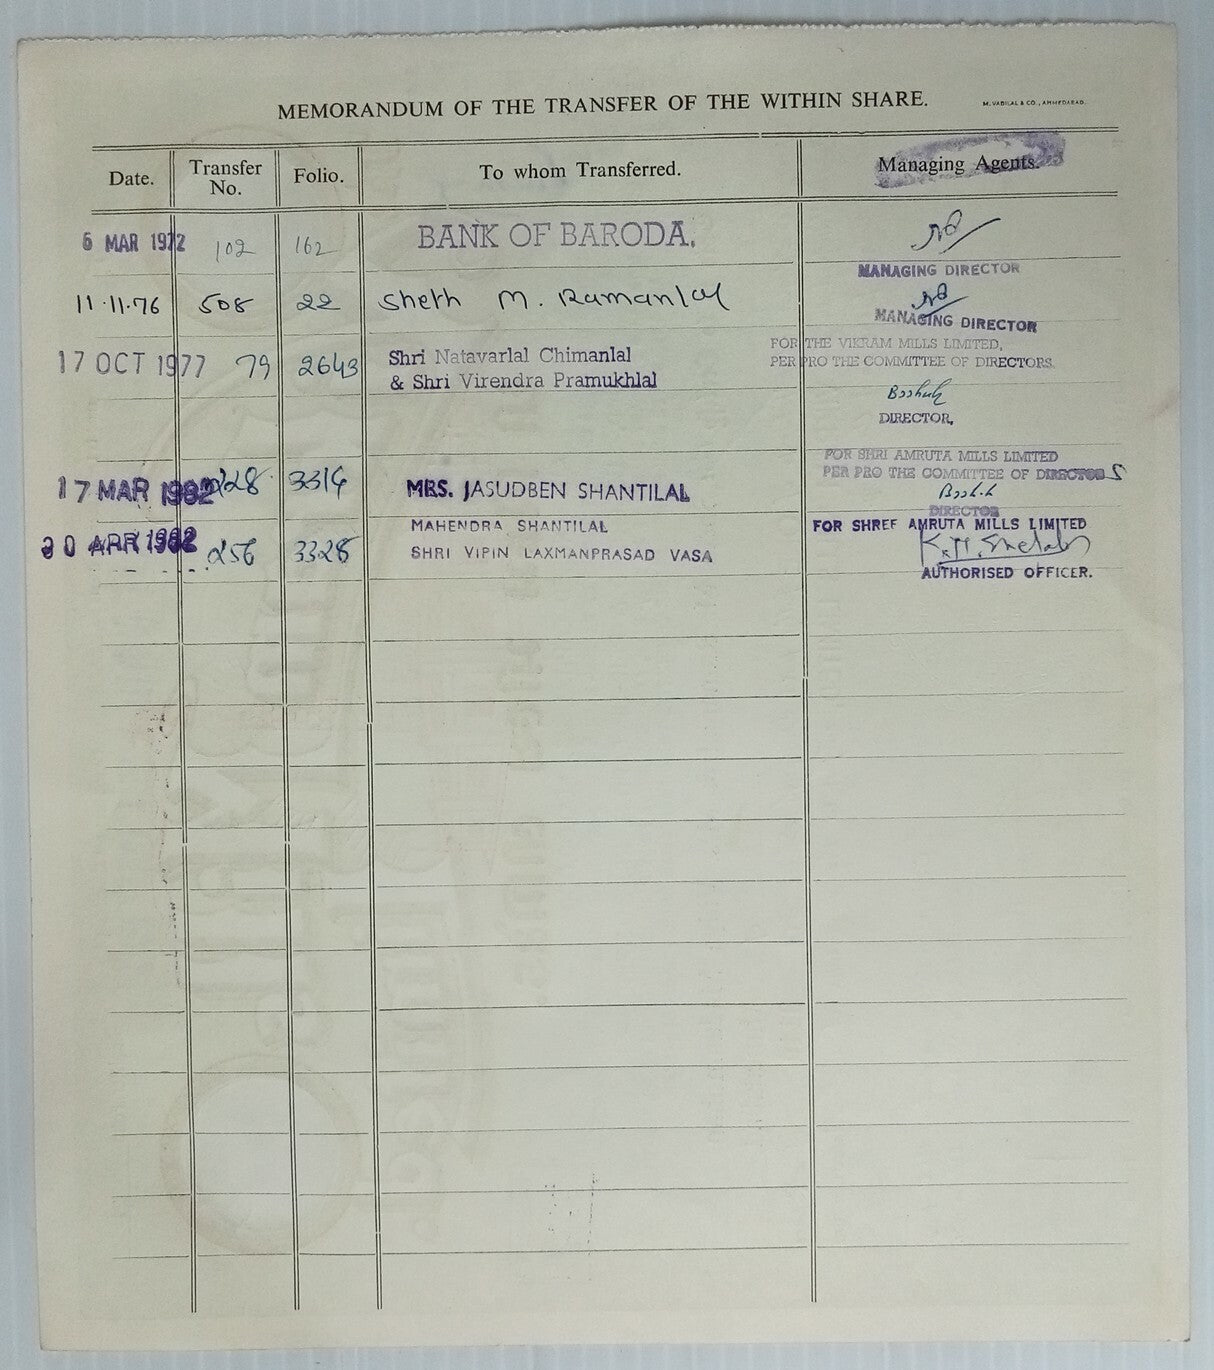 MEMORANDUM OF THE TRANSFER OF THE WITHIN SHARE.
M. VADILAL & CO., AHMEDABAD.
Date. Transfer No. Folio. To whom Transferred. Managing Agents.
6 MAR 1972 102 162 BANK OF BARODA.
MANAGING DIRECTOR
11.11.76 508 22 Sheth M. Ramanlal
MANAGING DIRECTOR
FOR THE VIKRAM MILLS LIMITED,
17 OCT 1977 79 2643 Shri Natavarlal Chimanlal PER PRO THE COMMITTEE OF DIRECTORS.
& Shri Virendra Pramukhlal
DIRECTOR,
FOR SHRI AMRUTA MILLS LIMITED
PER PRO THE COMMITTEE OF DIRECTORS
17 MAR 1982 228 3314 MRS. JASUDBEN SHANTILAL
DIRECTOR
MAHENDRA SHANTILAL FOR SHREE AMRUTA MILLS LIMITED
APR 1982 256 3328 SHRI VIPIN LAXMANPRASAD VASA
AUTHORISED OFFICER.